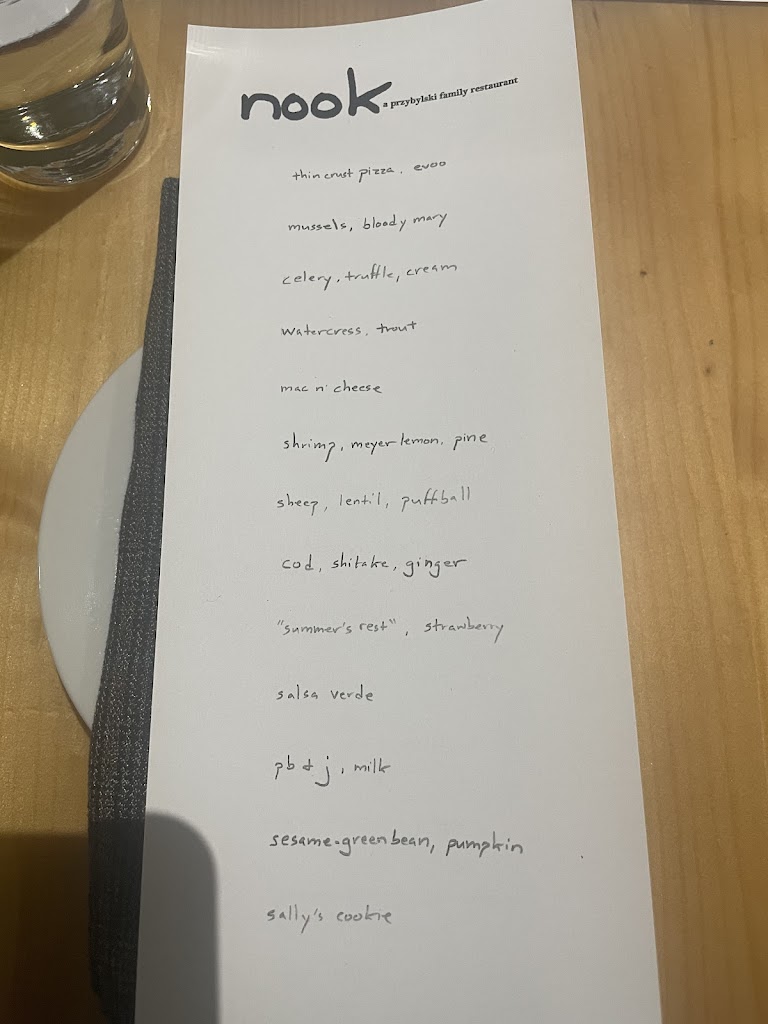 nook a przybylski family restaurant
thin crust pizza, evoo
mussels, bloody mary
celery, truffle, cream
watercress, trout
mac n' cheese
shrimp, meyer lemon, pine
sheep, lentil, puffball
cod, shitake, ginger
"summer's rest", strawberry
salsa verde
pb & j, milk
sesame-green bean, pumpkin
sally's cookie